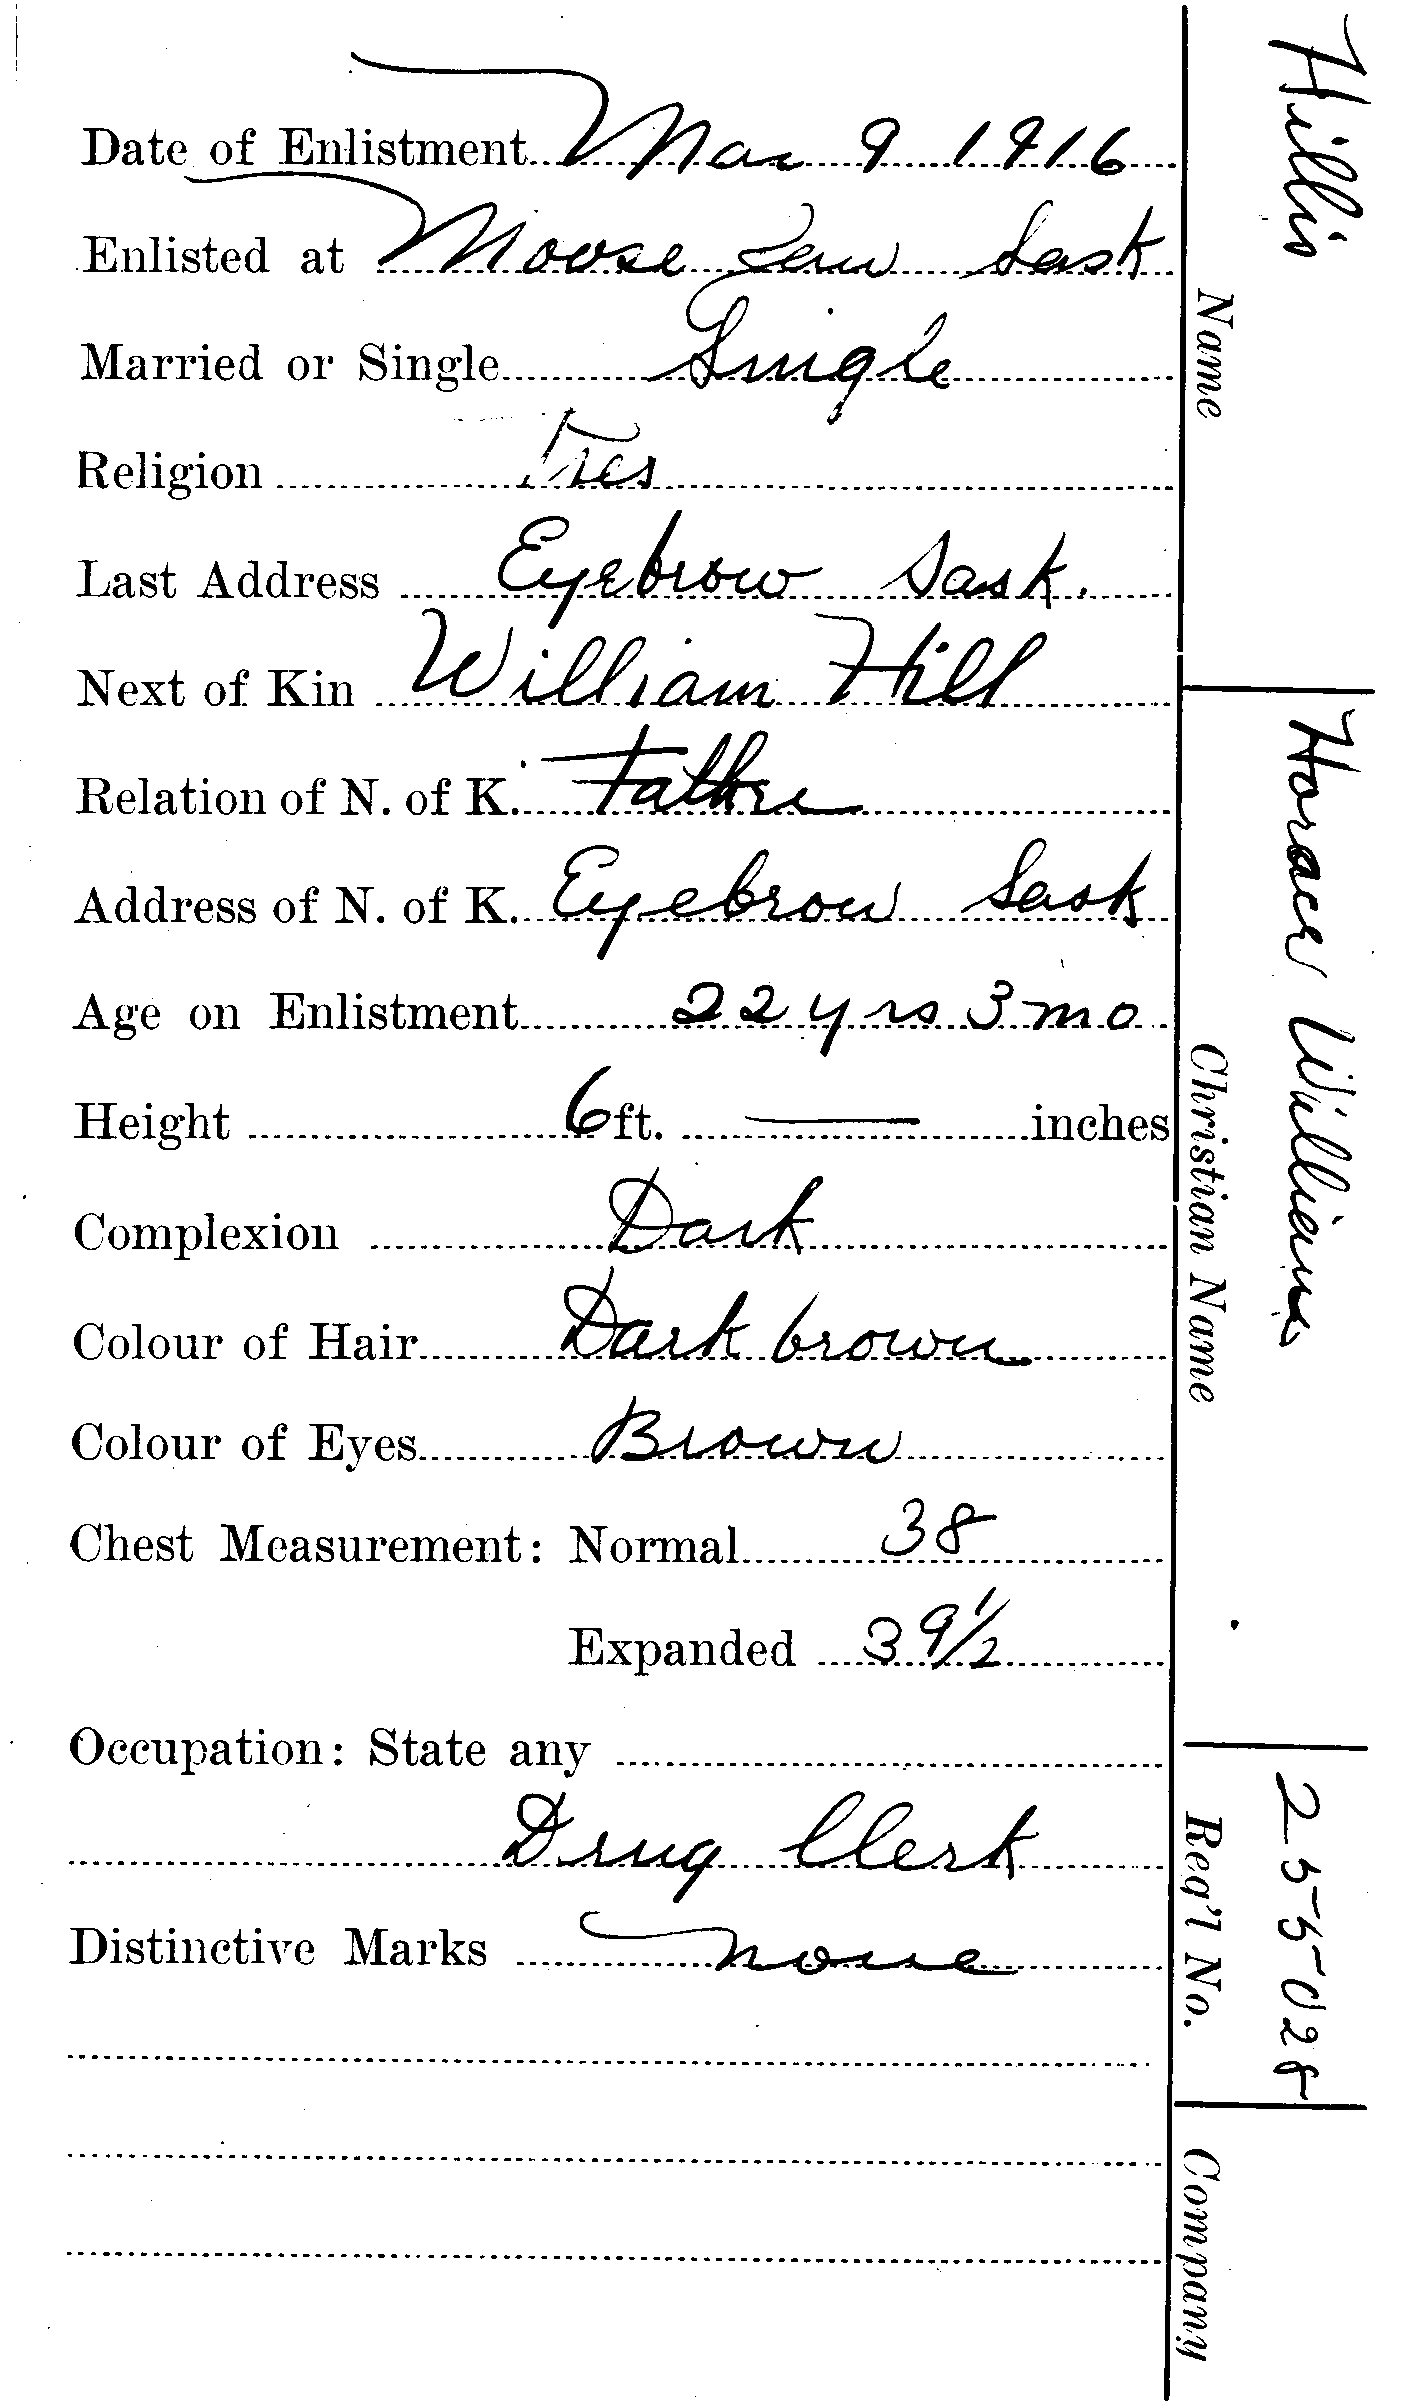 Date of Enlistment Mar 9 1916
Enlisted at Moose Jaw Sask
Married or Single Single
Religion Pres
Last Address Eyebrow Sask.
Next of Kin William Hill
Relation of N. of K. Father
Address of N. of K. Eyebrow Sask
Age on Enlistment 22 yrs 3 mo
Height 6 ft. — inches
Complexion Dark
Colour of Hair Dark brown
Colour of Eyes Brown
Chest Measurement: Normal 38
Expanded 39½
Occupation: State any
Drug Clerk
Distinctive Marks none
Hillis
Name
Horace William
Christian Name
255028
Reg'l No.
Company